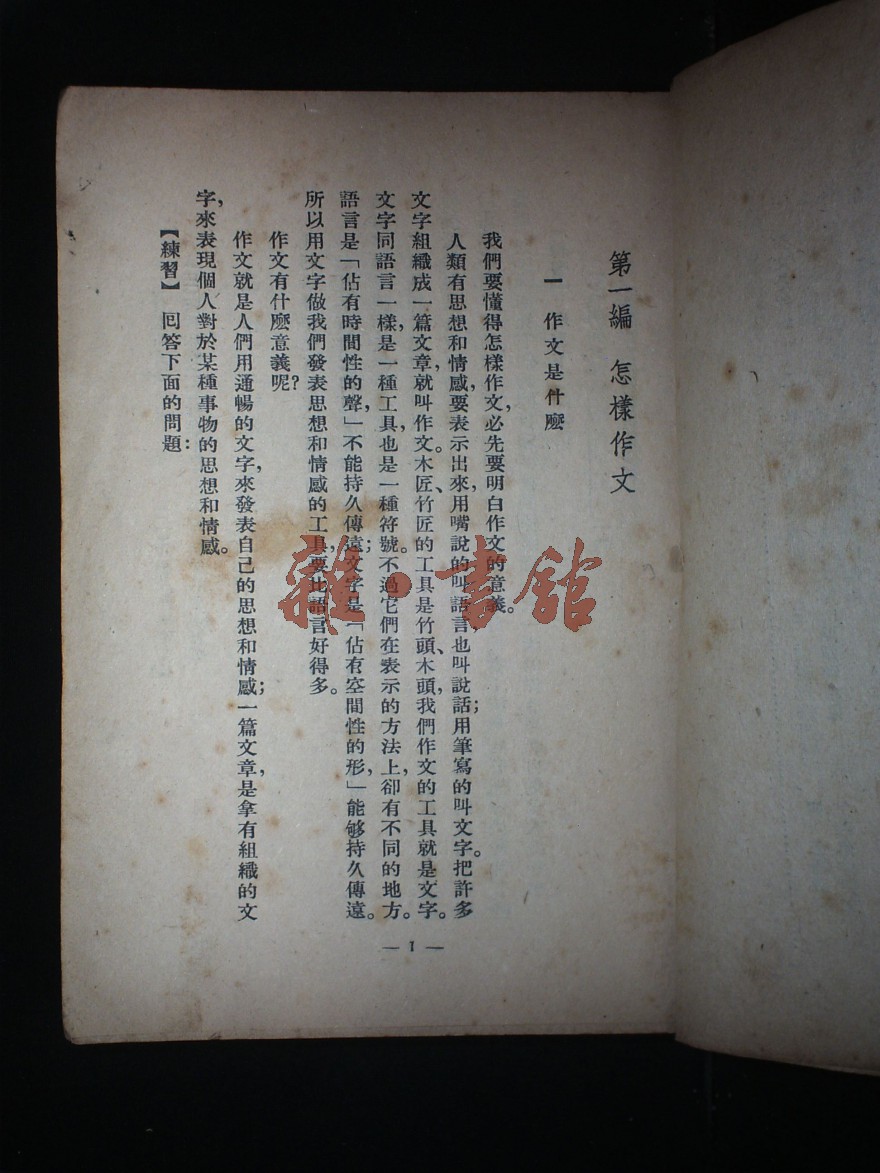 第一編　怎樣作文
一　作文是什麽
我們要懂得怎樣作文，必先要明白作文的意義。
人類有思想和情感，要表示出來，用嘴說的叫語言，也叫說話；用筆寫的叫文字。把許多
文字組織成一篇文章，就叫作文。木匠、竹匠的工具是竹頭、木頭，我們作文的工具就是文字。
文字同語言一樣，是一種工具，也是一種符號。不過它們在表示的方法上，卻有不同的地方。
語言是「佔有時間性的聲，」不能持久傳遠；文字是「佔有空間性的形，」能够持久傳遠。
所以用文字做我們發表思想和情感的工具，要比語言好得多。
作文有什麽意義呢？
作文就是人們用通暢的文字，來發表自己的思想和情感；一篇文章，是拿有組織的文
字，來表現個人對於某種事物的思想和情感。
【練習】　回答下面的問題：
— 1 —
雜·書館